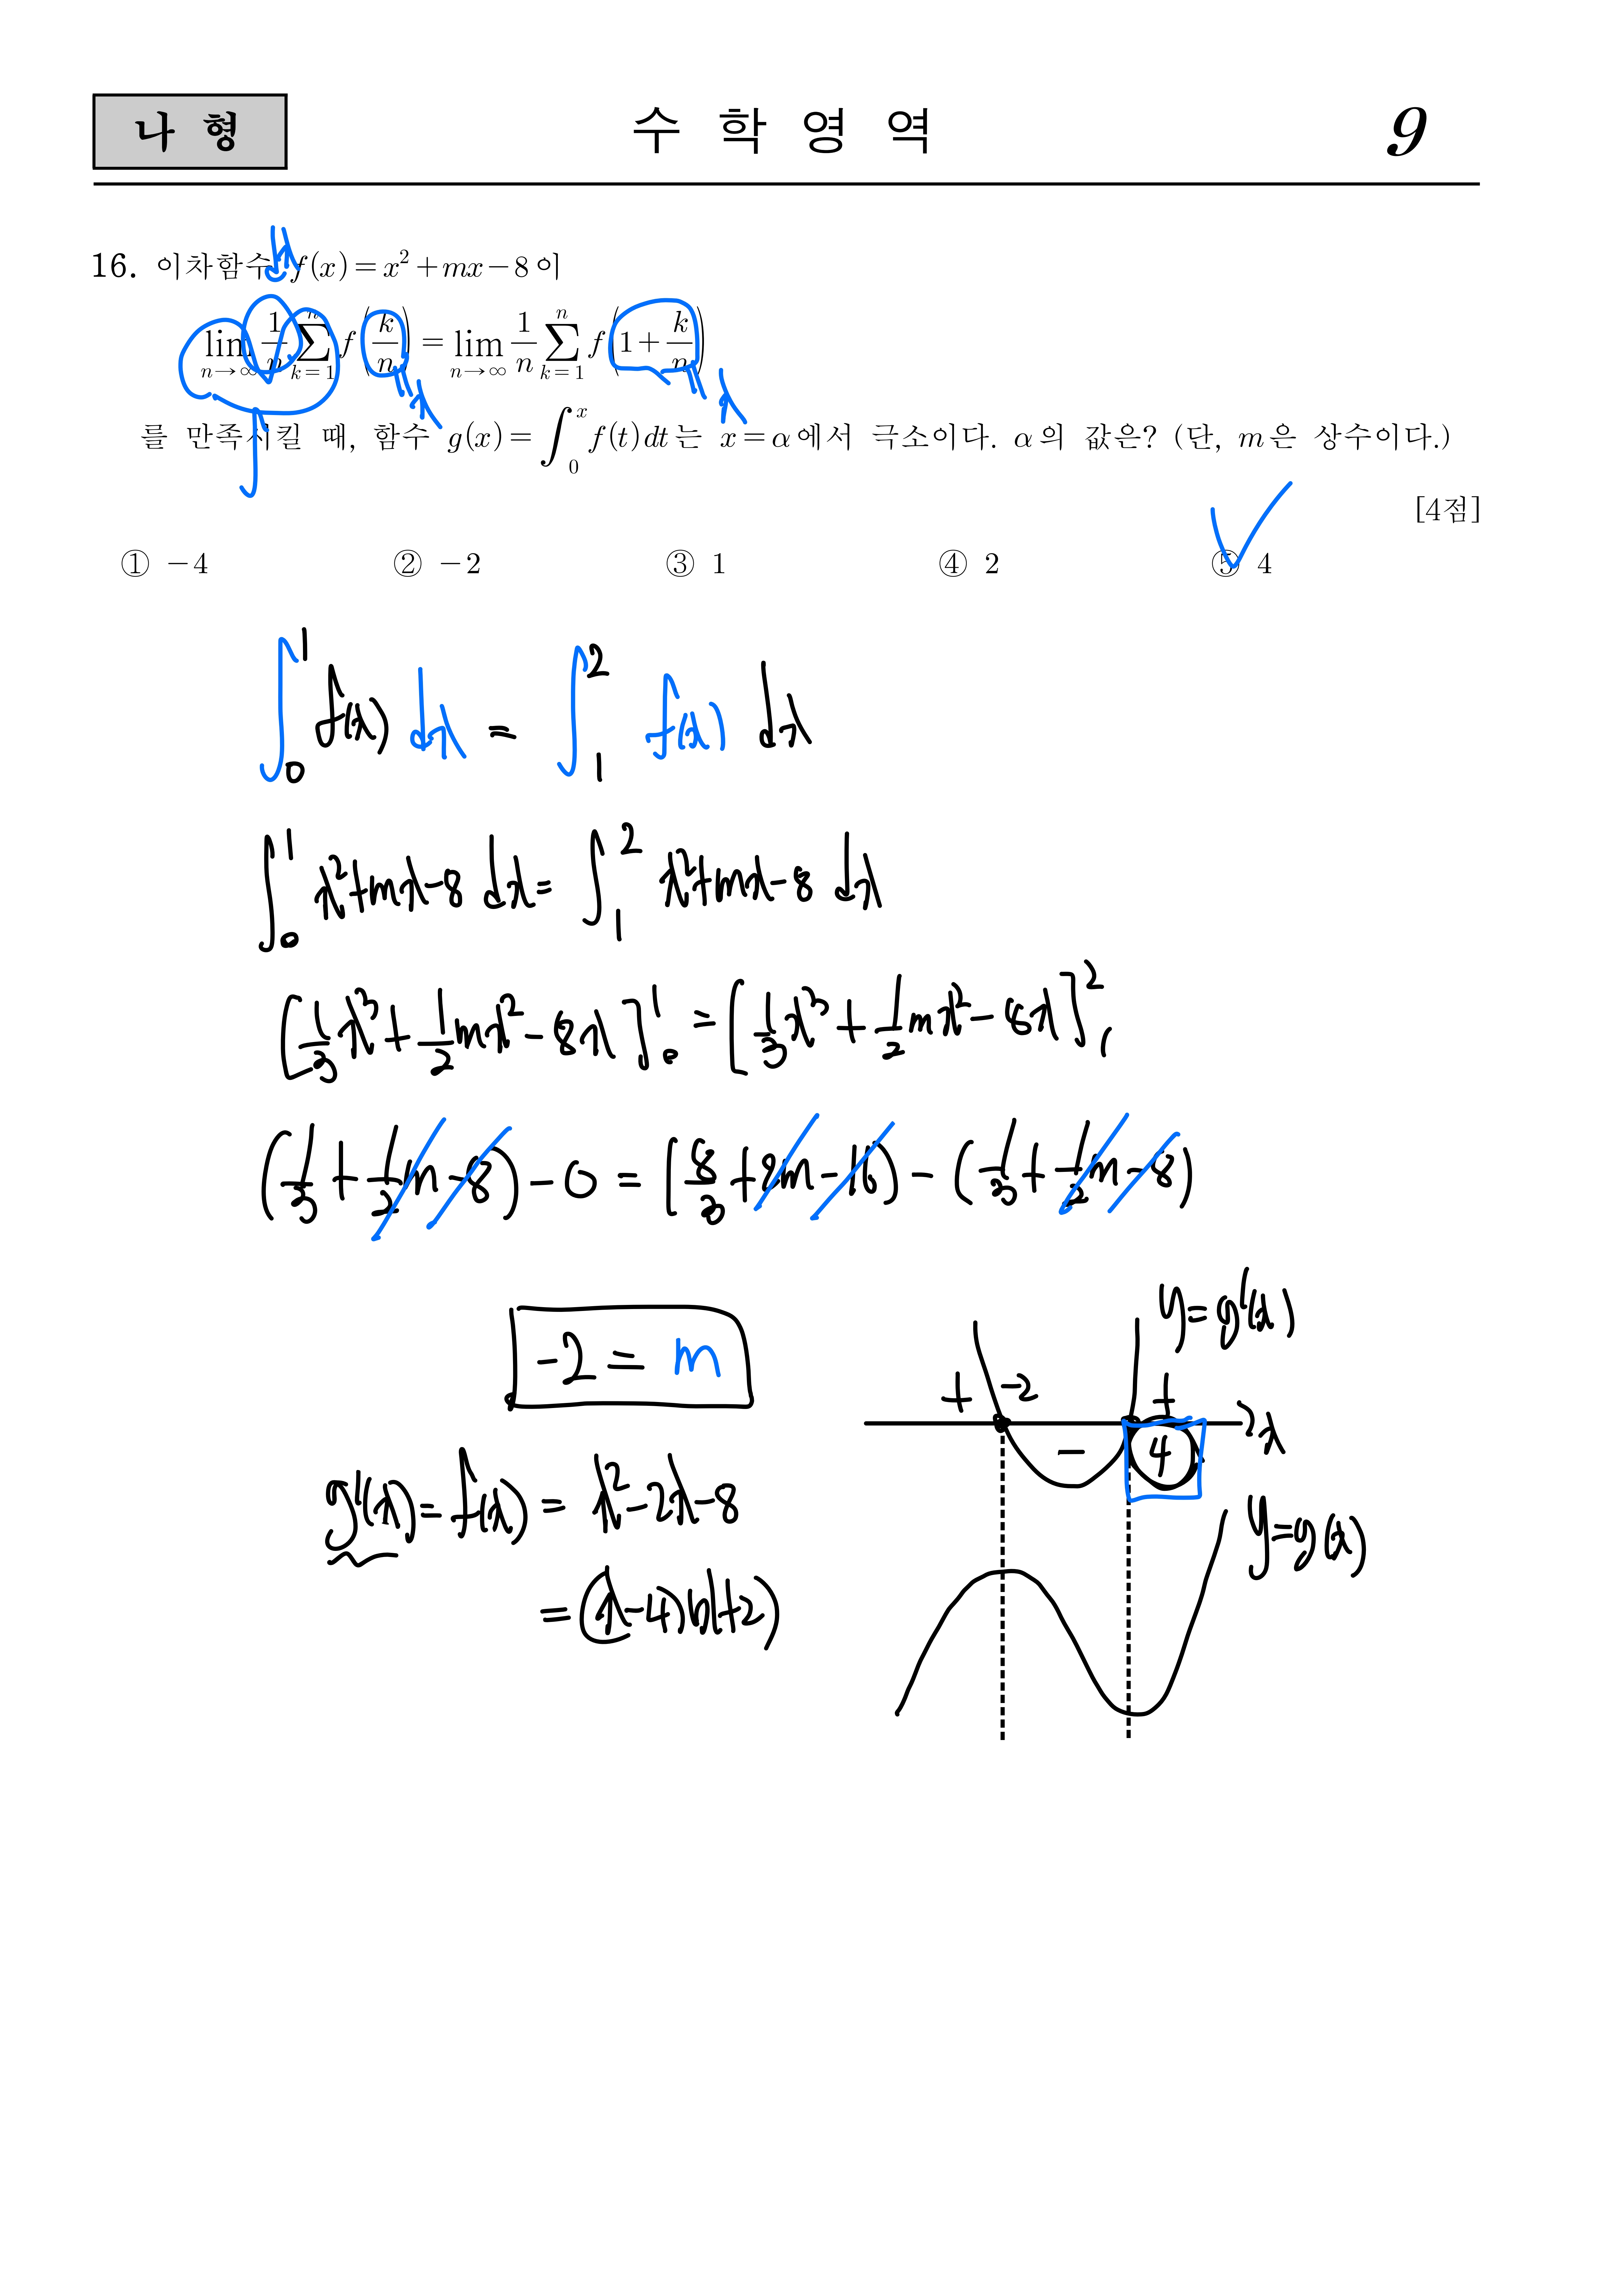 나 형
수 학 영 역
9
16. 이차함수 f(x)=x²+mx-8이
dx
lim_{n→∞} 1/n ∑_{k=1}^{n} f(k/n) = lim_{n→∞} 1/n ∑_{k=1}^{n} f(1+k/n)
∫ x x
를 만족시킬 때, 함수 g(x)=∫_0^x f(t)dt는 x=α에서 극소이다. α의 값은? (단, m은 상수이다.)
[4점]
① -4 ② -2 ③ 1 ④ 2 ⑤ 4
∫_0^1 f(x) dx = ∫_1^2 f(x) dx
∫_0^1 x²+mx-8 dx = ∫_1^2 x²+mx-8 dx
[1/3 x³ + 1/2 mx² - 8x]_0^1 = [1/3 x³ + 1/2 mx² - 8x]_1^2
(1/3 + 1/2 m - 8) - 0 = (8/3 + 2m - 16) - (1/3 + 1/2 m - 8)
-2 = m
g'(x) = f(x) = x²-2x-8
= (x-4)(x+2)
y=g'(x)
+ -2 +
- 4 x
y=g(x)